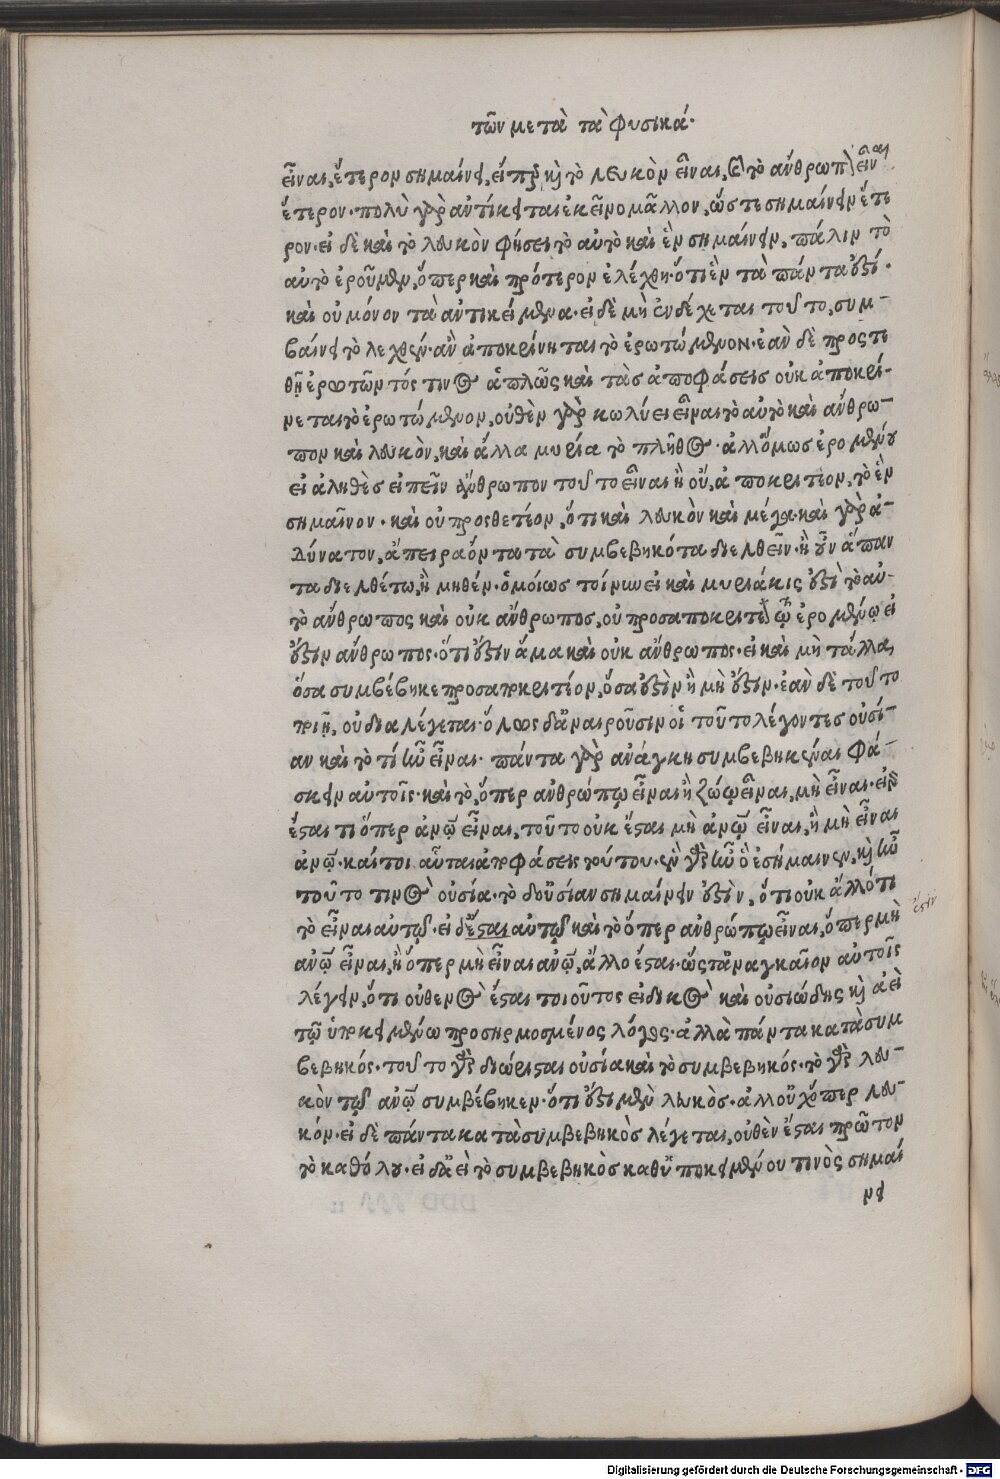 τῶν μετὰ τὰ φυσικά·
εἶναι, ἕτερον σημαίνει, εἴπερ καὶ τὸ λευκὸν εἶναι, καὶ τὸ ἀνθρώπῳ εἶναι
ἕτερον· πολὺ γὰρ ἀντίκειται ἐκεῖνο μᾶλλον, ὥστε σημαίνειν ἕτε
ρον· εἰ δὲ καὶ τὸ λευκὸν φήσει τὸ αὐτὸ καὶ ἓν σημαίνειν, πάλιν τὸ
αὐτὸ ἐροῦμεν, ὅπερ καὶ πρότερον ἐλέχθη· ὅτι ἓν τὰ πάντα ἐστί·
καὶ οὐ μόνον τὰ ἀντικείμενα· εἰ δὲ μὴ ἐνδέχεται τοῦτο, συμ-
βαίνει τὸ λεχθέν· ἂν ἀποκρίνηται τὸ ἐρωτώμενον· ἐὰν δὲ προςτι
θῇ ἐρωτῶντός τινος ἁπλῶς καὶ τὰς ἀποφάσεις οὐκ ἀποκρί-
νεται τὸ ἐρωτώμενον, οὐθὲν γὰρ κωλύει εἶναι τὸ αὐτὸ καὶ ἄνθρω-
πον καὶ λευκὸν, καὶ ἄλλα μυρία τὸ πλῆθος· ἀλλ' ὅμως ἐρομένου
εἰ ἀληθὲς εἰπεῖν ἄνθρωπον τοῦτο εἶναι ἢ οὔ, ἀποκριτέον, τὸ ἓν
σημαῖνον· καὶ οὐ προςθετέον, ὅτι καὶ λευκὸν καὶ μέγα· καὶ γὰρ ἀ-
δύνατον, ἄπειρα ὄντα τὰ συμβεβηκότα διελθεῖν· ἢ οὖν ἅπαν
τα διελθέτω, ἢ μηθέν· ὁμοίως τοίνυν εἰ καὶ μυριάκις ἐστὶ τὸ αὐ-
τὸ ἄνθρωπος καὶ οὐκ ἄνθρωπος, οὐ προσαποκριτέον τῷ ἐρομένῳ εἰ
ἔστιν ἄνθρωπος· ὅτι ἔστιν ἅμα καὶ οὐκ ἄνθρωπος· εἰ καὶ μὴ τἆλλα,
ὅσα συμβέβηκε προσαποκριτέον, ὅσα ἐστὶν ἢ μὴ ἔστιν· ἐὰν δὲ τοῦτο
ποιῇ, οὐ διαλέγεται· ὅλως δ' ἀναιροῦσιν οἱ τοῦτο λέγοντες οὐσί-
αν καὶ τὸ τί ἦν εἶναι· πάντα γὰρ ἀνάγκη συμβεβηκέναι φά-
σκειν αὐτοῖς· καὶ τὸ, ὅπερ ἀνθρώπῳ εἶναι ἢ ζώῳ εἶναι, μὴ εἶναι· εἰ γὰρ
ἔσται τι ὅπερ ἀνῳ εἶναι, τοῦτο οὐκ ἔσται μὴ ἀνῳ εἶναι, ἢ μὴ εἶναι
ἀνῳ· καίτοι αὗται ἀποφάσεις τούτου· ἓν γὰρ ἦν ὃ ἐσήμαινεν, καὶ ἦν
τοῦτο τινὸς οὐσία· τὸ δ' οὐσίαν σημαίνειν ἐστὶν, ὅτι οὐκ ἄλλό τι
τὸ εἶναι αὐτῷ· εἰ δ' ἔσται αὐτῷ καὶ τὸ ὅπερ ἀνθρώπῳ εἶναι, ὅπερ μὴ
ἀνῳ εἶναι, ἢ ὅπερ μὴ εἶναι ἀνῳ, ἄλλο ἔσται· ὥςτ' ἀναγκαῖον αὐτοῖς
λέγειν, ὅτι οὐθενὸς ἔσται τοιοῦτος εἰδικὸς καὶ οὐσιώδης καὶ ἀεὶ
τῷ ὑποκειμένῳ προσηρμοσμένος λόγος· ἀλλὰ πάντα κατὰ συμ
βεβηκός· τοῦτο γὰρ διώρισται οὐσία καὶ τὸ συμβεβηκός· τὸ γὰρ λευ-
κὸν τῷ ἀνῳ συμβέβηκεν· ὅτι ἐστὶ μὲν λευκὸς· ἀλλ' οὐχ ὅπερ λευ-
κόν· εἰ δὲ πάντα κατὰ συμβεβηκὸς λέγεται, οὐθὲν ἔσται πρῶτον
τὸ καθόλου· εἰ δ' ἀεὶ τὸ συμβεβηκὸς καθ' ὑποκειμένου τινὸς σημαί
νει
ἐστὶν
Digitalisierung gefördert durch die Deutsche Forschungsgemeinschaft - DFG